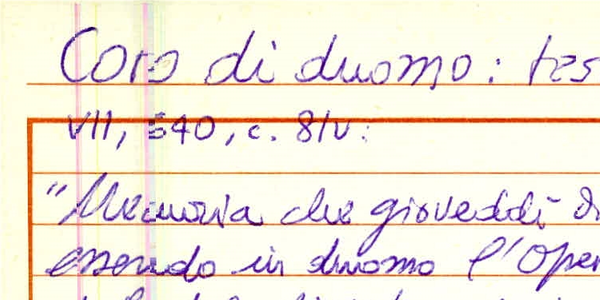 Coro di duomo: tes
VII, 540, c. 81v:
"Memoria che giovedidì di
essendo in duomo l'Oper